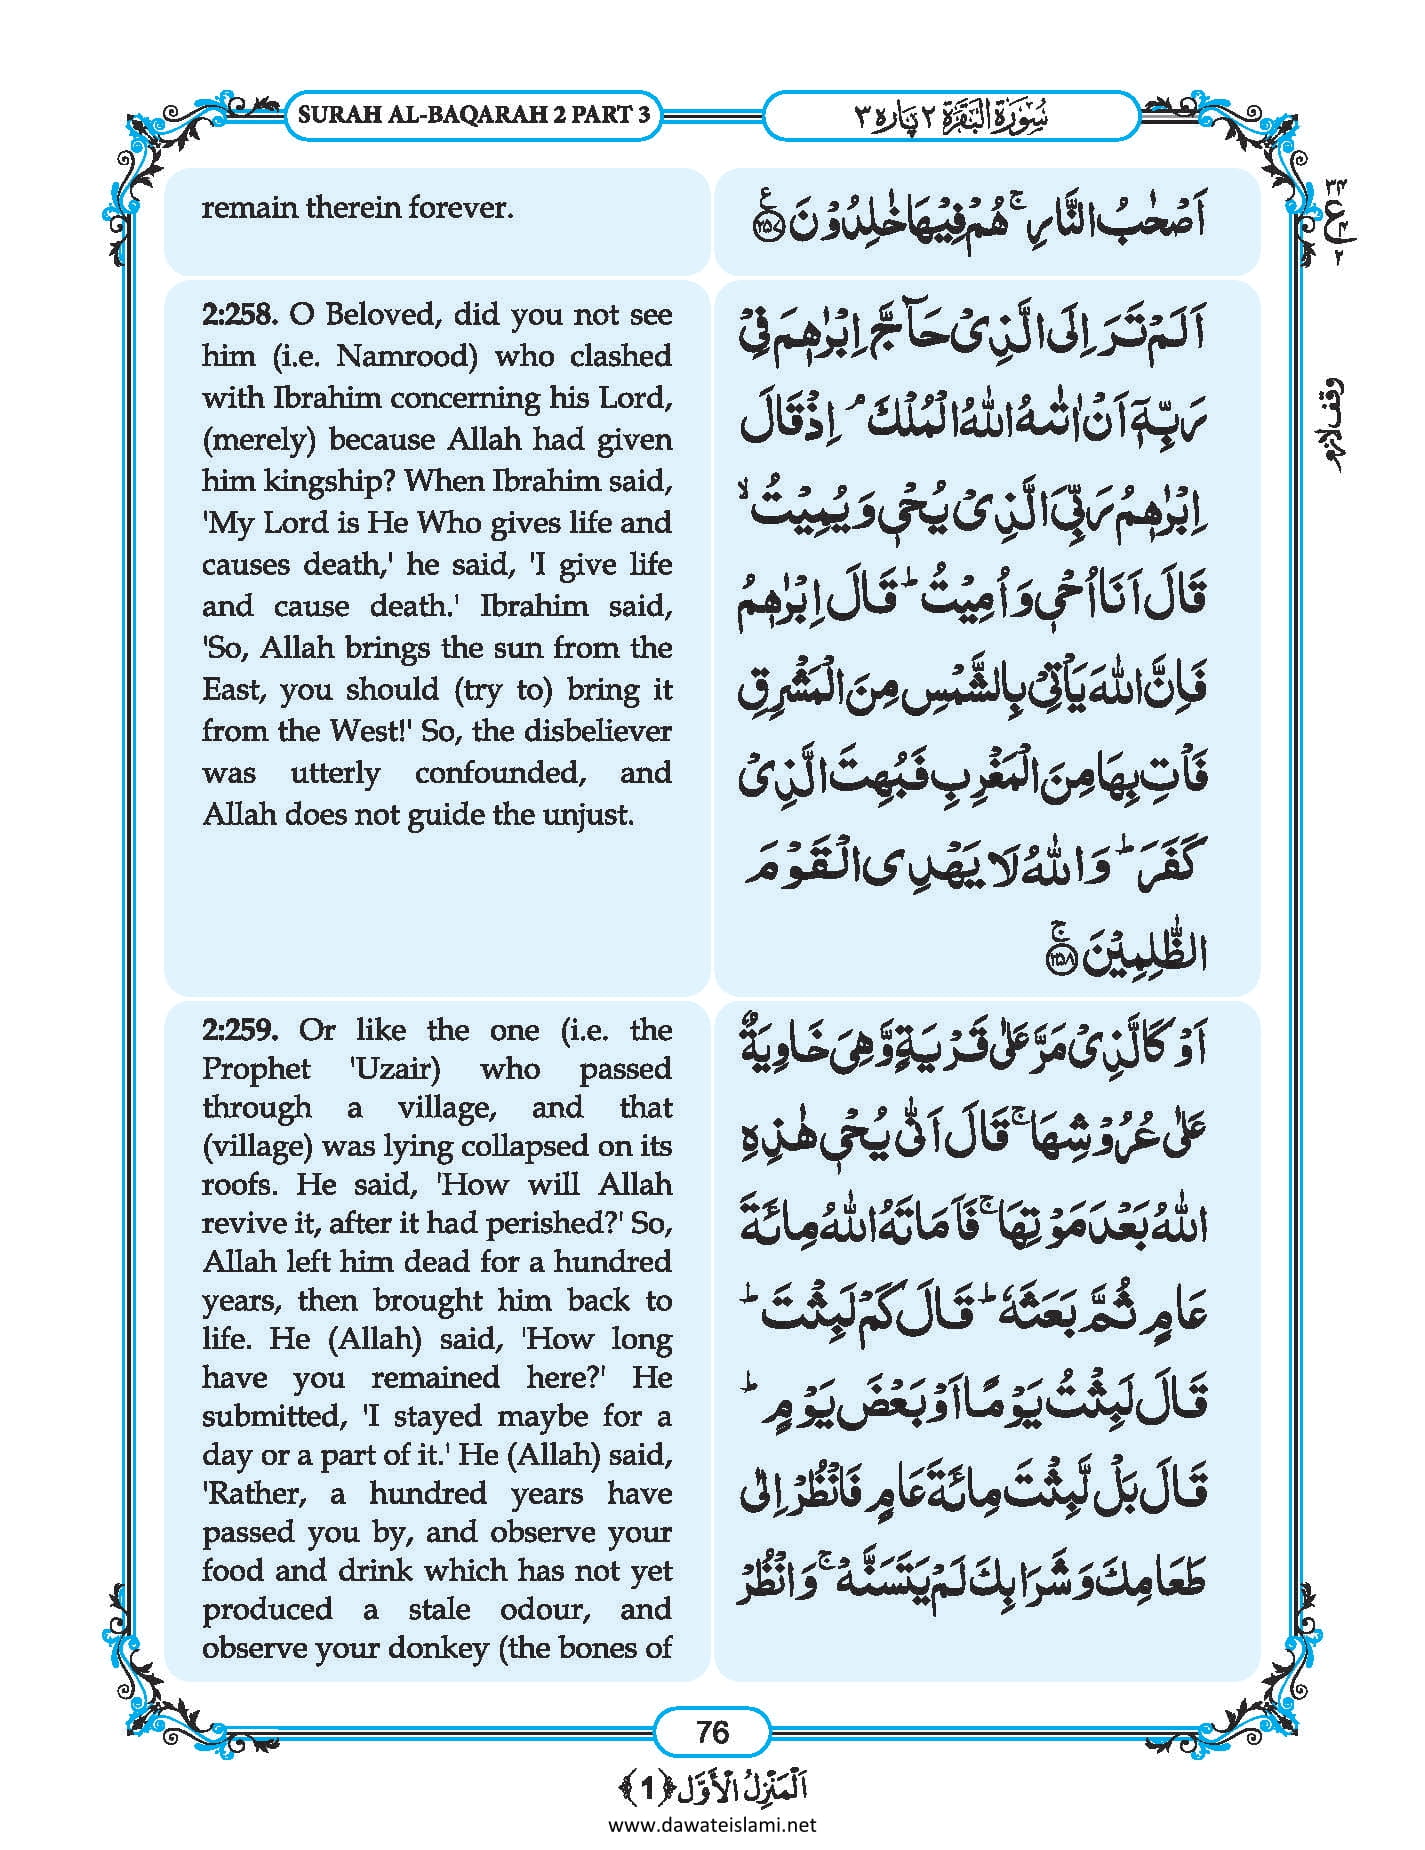 SURAH AL-BAQARAH 2 PART 3
سُوْرَةُ الْبَقَرَة ٢ پَارہ ٣
remain therein forever.
اَصْحٰبُ النَّارِ ۚ هُمْ فِيْهَا خٰلِدُوْنَ ﴿۲۵۷﴾ ع
٣٤
ع
٢
2:258. O Beloved, did you not see
him (i.e. Namrood) who clashed
with Ibrahim concerning his Lord,
(merely) because Allah had given
him kingship? When Ibrahim said,
'My Lord is He Who gives life and
causes death,' he said, 'I give life
and cause death.' Ibrahim said,
'So, Allah brings the sun from the
East, you should (try to) bring it
from the West!' So, the disbeliever
was utterly confounded, and
Allah does not guide the unjust.
اَلَمْ تَرَ اِلَى الَّذِيْ حَآجَّ اِبْرٰهٖمَ فِيْ
رَبِّهٖۤ اَنْ اٰتٰىهُ اللّٰهُ الْمُلْكَ ۘ اِذْ قَالَ
اِبْرٰهٖمُ رَبِّيَ الَّذِيْ يُحْيٖ وَيُمِيْتُ ۙ
قَالَ اَنَا اُحْيٖ وَاُمِيْتُ ؕ قَالَ اِبْرٰهٖمُ
فَاِنَّ اللّٰهَ يَاْتِيْ بِالشَّمْسِ مِنَ الْمَشْرِقِ
فَاْتِ بِهَا مِنَ الْمَغْرِبِ فَبُهِتَ الَّذِيْ
كَفَرَ ؕ وَاللّٰهُ لَا يَهْدِي الْقَوْمَ
الظّٰلِمِيْنَ ﴿۲۵۸﴾ ۚ
وقف لازم
2:259. Or like the one (i.e. the
Prophet 'Uzair) who passed
through a village, and that
(village) was lying collapsed on its
roofs. He said, 'How will Allah
revive it, after it had perished?' So,
Allah left him dead for a hundred
years, then brought him back to
life. He (Allah) said, 'How long
have you remained here?' He
submitted, 'I stayed maybe for a
day or a part of it.' He (Allah) said,
'Rather, a hundred years have
passed you by, and observe your
food and drink which has not yet
produced a stale odour, and
observe your donkey (the bones of
اَوْ كَالَّذِيْ مَرَّ عَلٰى قَرْيَةٍ وَّهِيَ خَاوِيَةٌ
عَلٰى عُرُوْشِهَا ۚ قَالَ اَنّٰى يُحْيٖ هٰذِهِ
اللّٰهُ بَعْدَ مَوْتِهَا ۚ فَاَمَاتَهُ اللّٰهُ مِائَةَ
عَامٍ ثُمَّ بَعَثَهٗ ؕ قَالَ كَمْ لَبِثْتَ ؕ
قَالَ لَبِثْتُ يَوْمًا اَوْ بَعْضَ يَوْمٍ ؕ
قَالَ بَلْ لَّبِثْتَ مِائَةَ عَامٍ فَانْظُرْ اِلٰى
طَعَامِكَ وَشَرَابِكَ لَمْ يَتَسَنَّهْ ۚ وَانْظُرْ
76
اَلْمَنْزِلُ الْاَوَّل ﴿1﴾
www.dawateislami.net